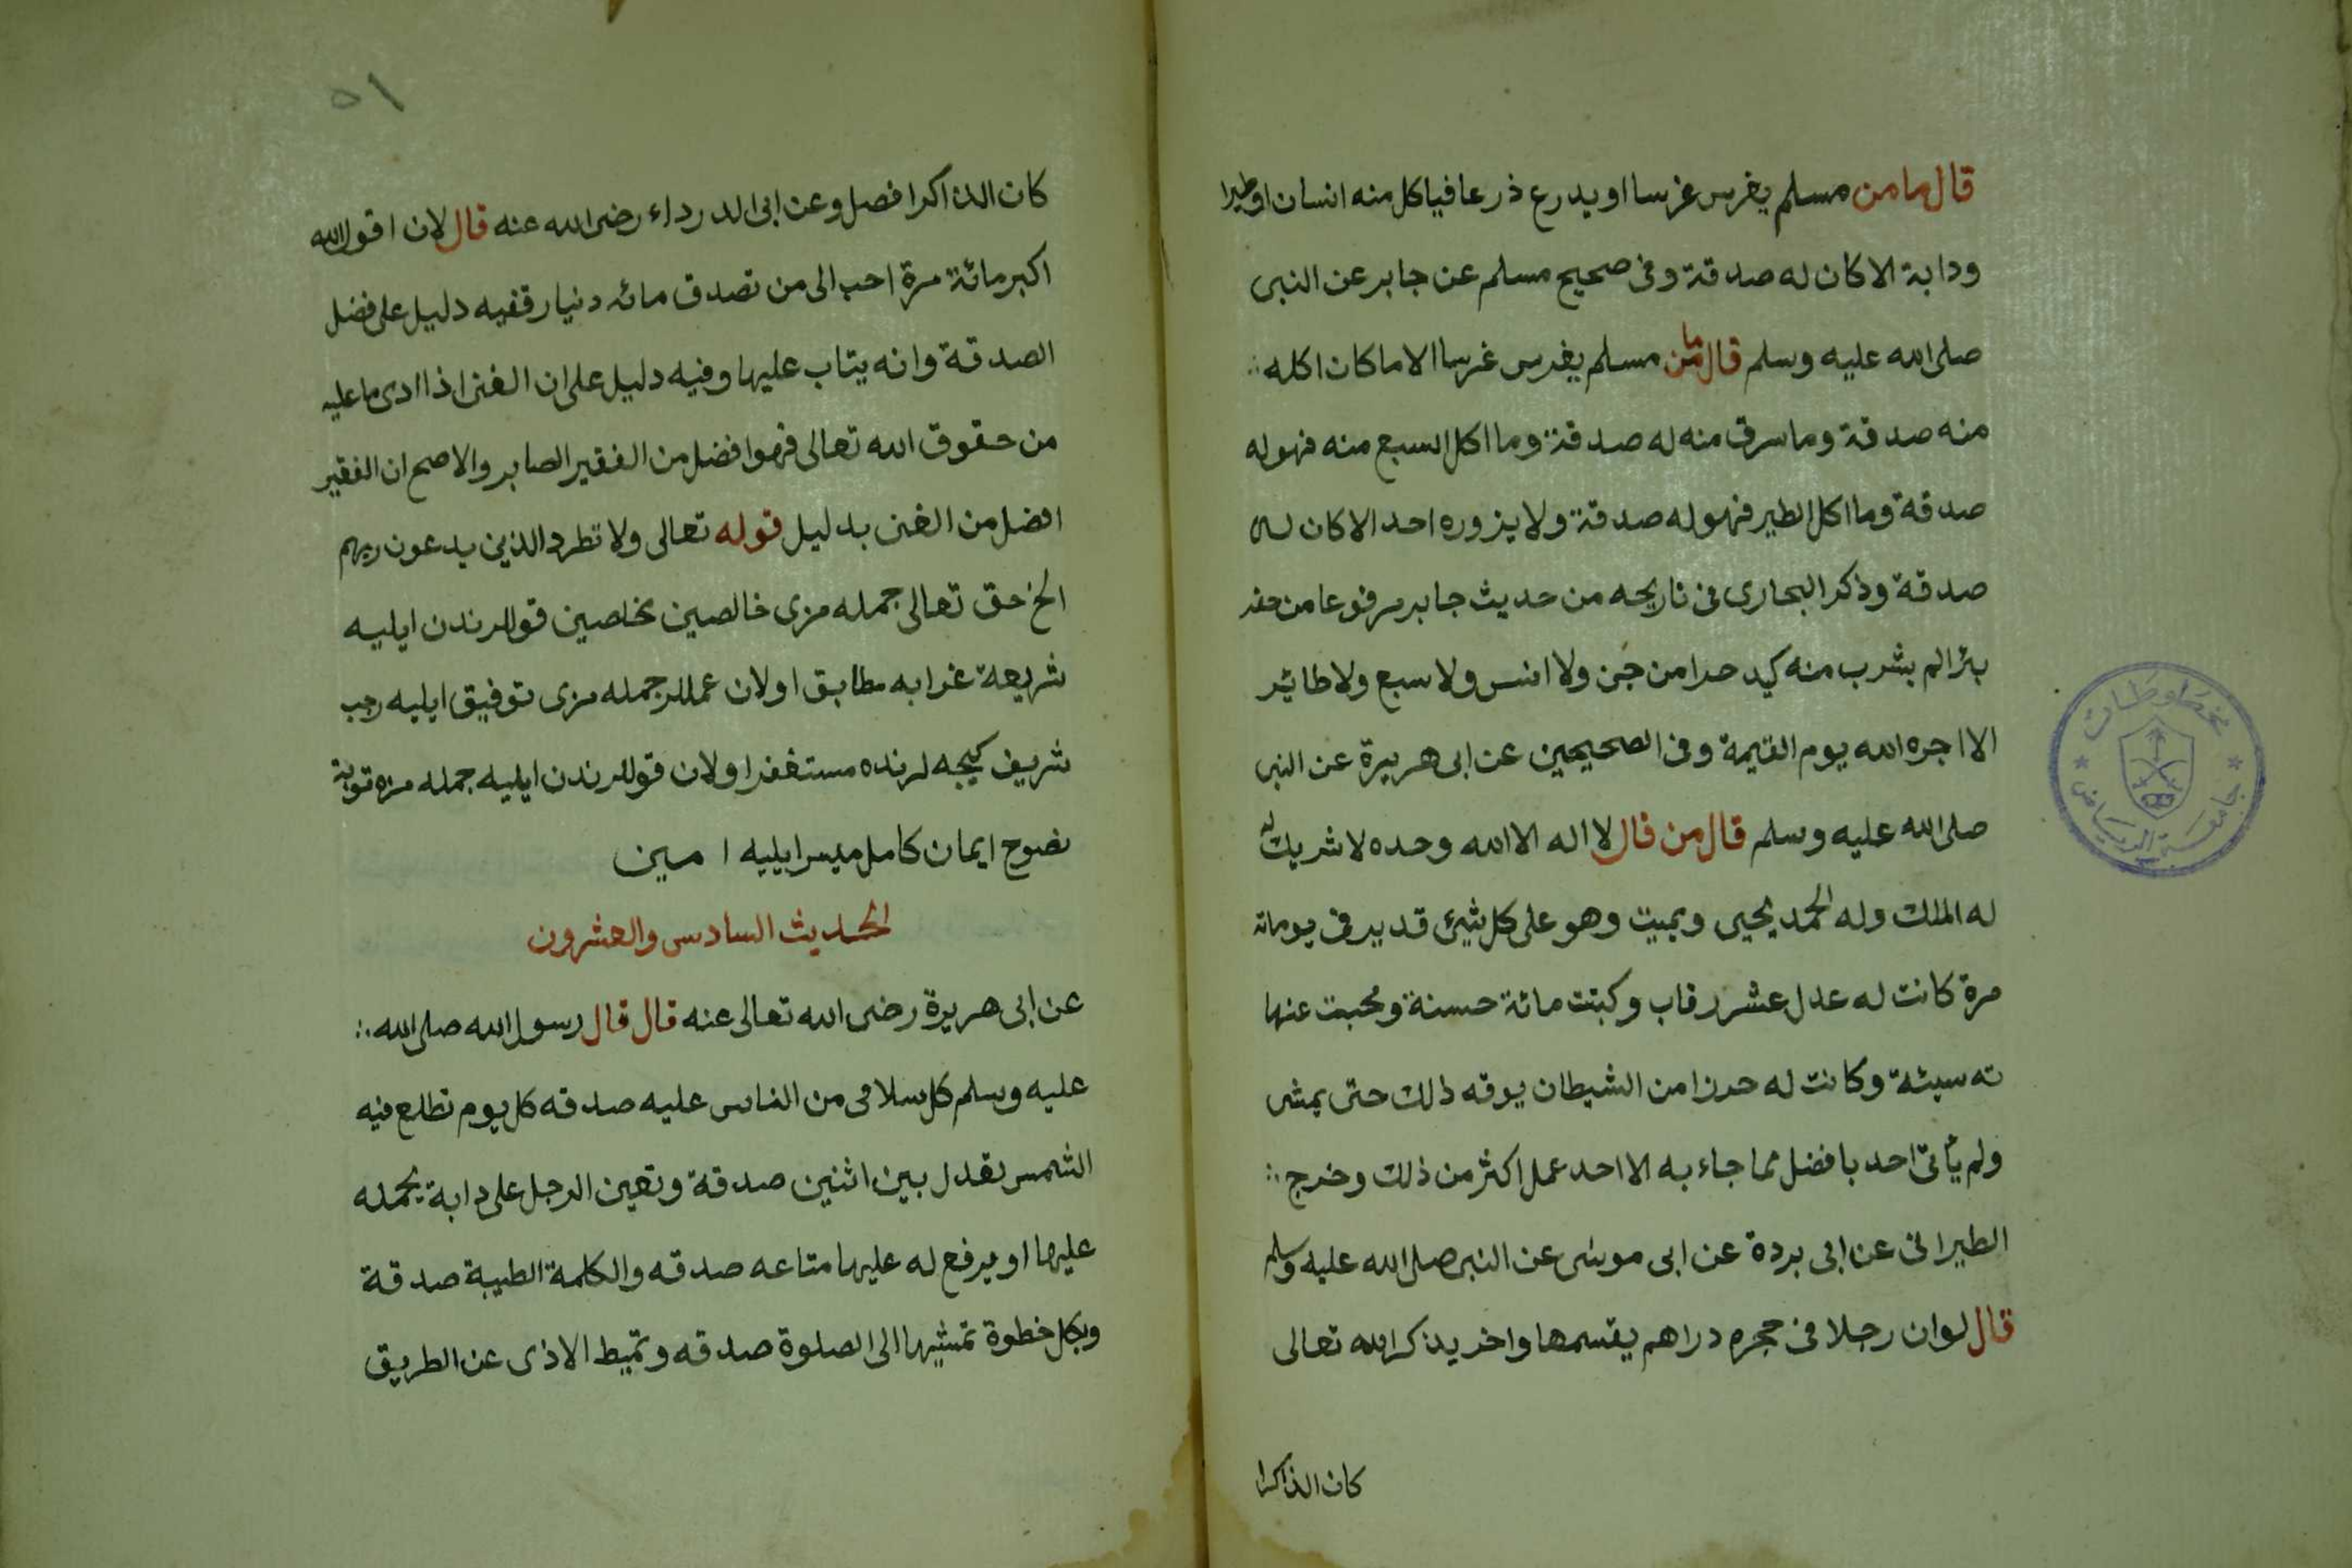 قال ما من مسلم يغرس غرسا او يدرع ذرعا فياكل منه انسان او طيرا
ودابة الا كان له صدقة وفى صحيح مسلم عن جابر عن النبى
صلى الله عليه وسلم قال ما من مسلم يغرس غرسا الا ما كان اكله
منه صدقة وما سرق منه له صدقة وما اكل السبع منه فهوله
صدقة وما اكل الطير فهوله صدقة ولا يزوره احد الا كان له
صدقة وذكر البخارى فى تاريخه من حديث جابر مرفوعا من حفر
بئرا لم يشرب منه كيد حرا من جن ولا انس ولا سبع ولا طائر
الا اجره الله يوم القيمة وفى الصحيحين عن ابى هريرة عن النبى
صلى الله عليه وسلم قال من قال لا اله الا الله وحده لا شريك له
له الملك وله الحمد يحيى ويميت وهو على كل شيئ قدير فى يوم مائة
مرة كانت له عدل عشر رقاب وكبتت مائة حسنة ومحيت عنها
ته سيئة وكانت له حرزا من الشيطان يوقه ذلك حتى يمشى
ولم يأتى احد با فضل مما جاء به الا احد عمل اكثر من ذلك وخرج
الطيرانى عن ابى بردة عن ابى موسى عن النبى صلى الله عليه وسلم
قال لو ان رجلا فى حجره دراهم يقسمها واخر يذكر الله تعالى
كان الذاكرا
٥١
كان الذاكرا فصل وعن ابى الدرداء رضى الله عنه قال لان اقول الله
اكبر مائة مرة احب الى من تصدق مائه دنيار ففيه دليل على فضل
الصدقة وانه يتاب عليها وفيه دليل على ان الغنى اذا ادى ما عليه
من حقوق الله تعالى فهوا فضل من الفقير الصابر والاصح ان الفقير
افضل من الغنى بدليل قوله تعالى ولا تطرد الذين يدعون ربهم
الخ حق تعالى جمله مزى خالصين مخلصين قوللرندن ايليه
شريعة غرا به مطابق اولان عمللر جمله مزى توفيق ايليه رجب
شريف كيجه لرنده مستغفر اولان قوللرندن ايليه جمله مزه توبة
نضوح ايمان كامل ميسر ايليه امين
الحديث السادس والعشرون
عن ابى هريرة رضى الله تعالى عنه قال قال رسول الله صلى الله
عليه وسلم كل سلامى من الناس عليه صدقه كل يوم تطلع فيه
الشمس تعدل بين اثنين صدقة وتعين الرجل على دابة يحمله
عليها او يرفع له عليها متاعه صدقه والكلمة الطيبة صدقة
وبكل خطوة تمشيها الى الصلوة صدقه وتميط الاذى عن الطريق
مخطوطات
جامعة الرياض